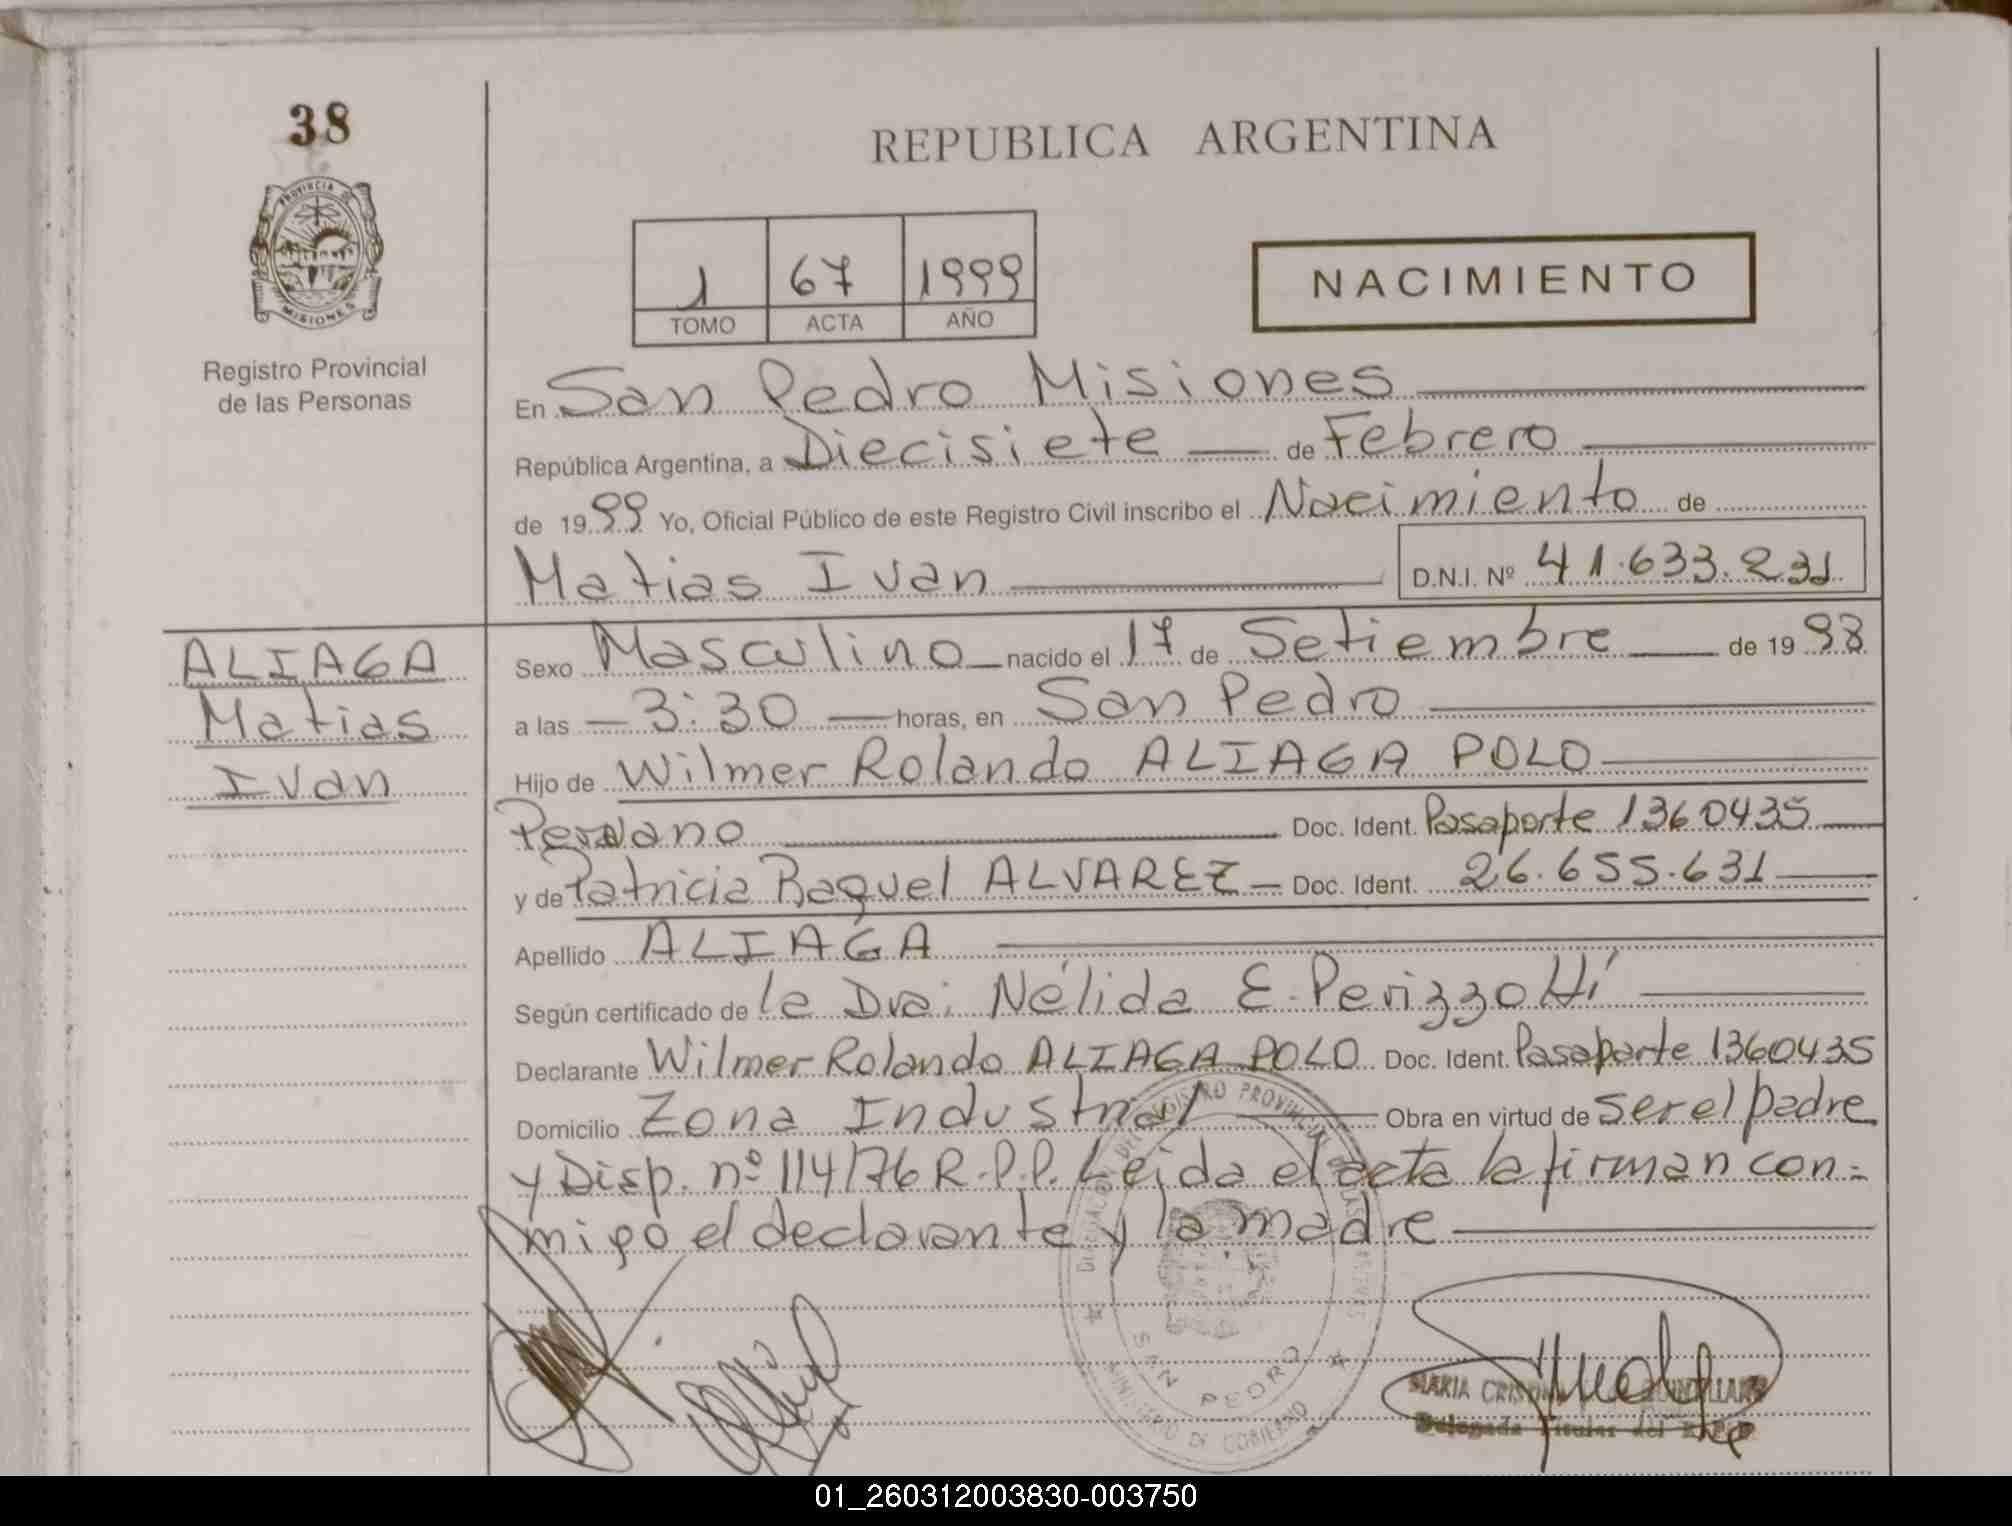 38
PROVINCIA DE
MISIONES
Registro Provincial
de las Personas
REPUBLICA ARGENTINA
1 67 1999
TOMO ACTA AÑO
NACIMIENTO
En San Pedro Misiones
República Argentina, a Diecisiete de Febrero
de 1999 Yo, Oficial Público de este Registro Civil inscribo el Nacimiento de
Matias Ivan D.N.I. Nº 41.633.231
ALIAGA
Matias
Ivan
Sexo Masculino nacido el 17 de Setiembre de 1998
a las 3:30 horas, en San Pedro
Hijo de Wilmer Rolando ALIAGA POLO
Peruano Doc. Ident. Pasaporte 1360435
y de Patricia Raquel ALVAREZ Doc. Ident. 26.655.631
Apellido ALIAGA
Según certificado de la Dra. Nélida E. Perizzotti
Declarante Wilmer Rolando ALIAGA POLO Doc. Ident. Pasaporte 1360435
Domicilio Zona Industrial Obra en virtud de ser el padre
y Disp. nº 114/76 R.P.P. Leida el acta la firman con-
migo el declarante y la madre
REGISTRO PROVINCIAL DE LAS PERSONAS
SAN PEDRO
MINISTERIO DE GOBIERNO
MARIA
Delegada Titular del
01_260312003830-003750